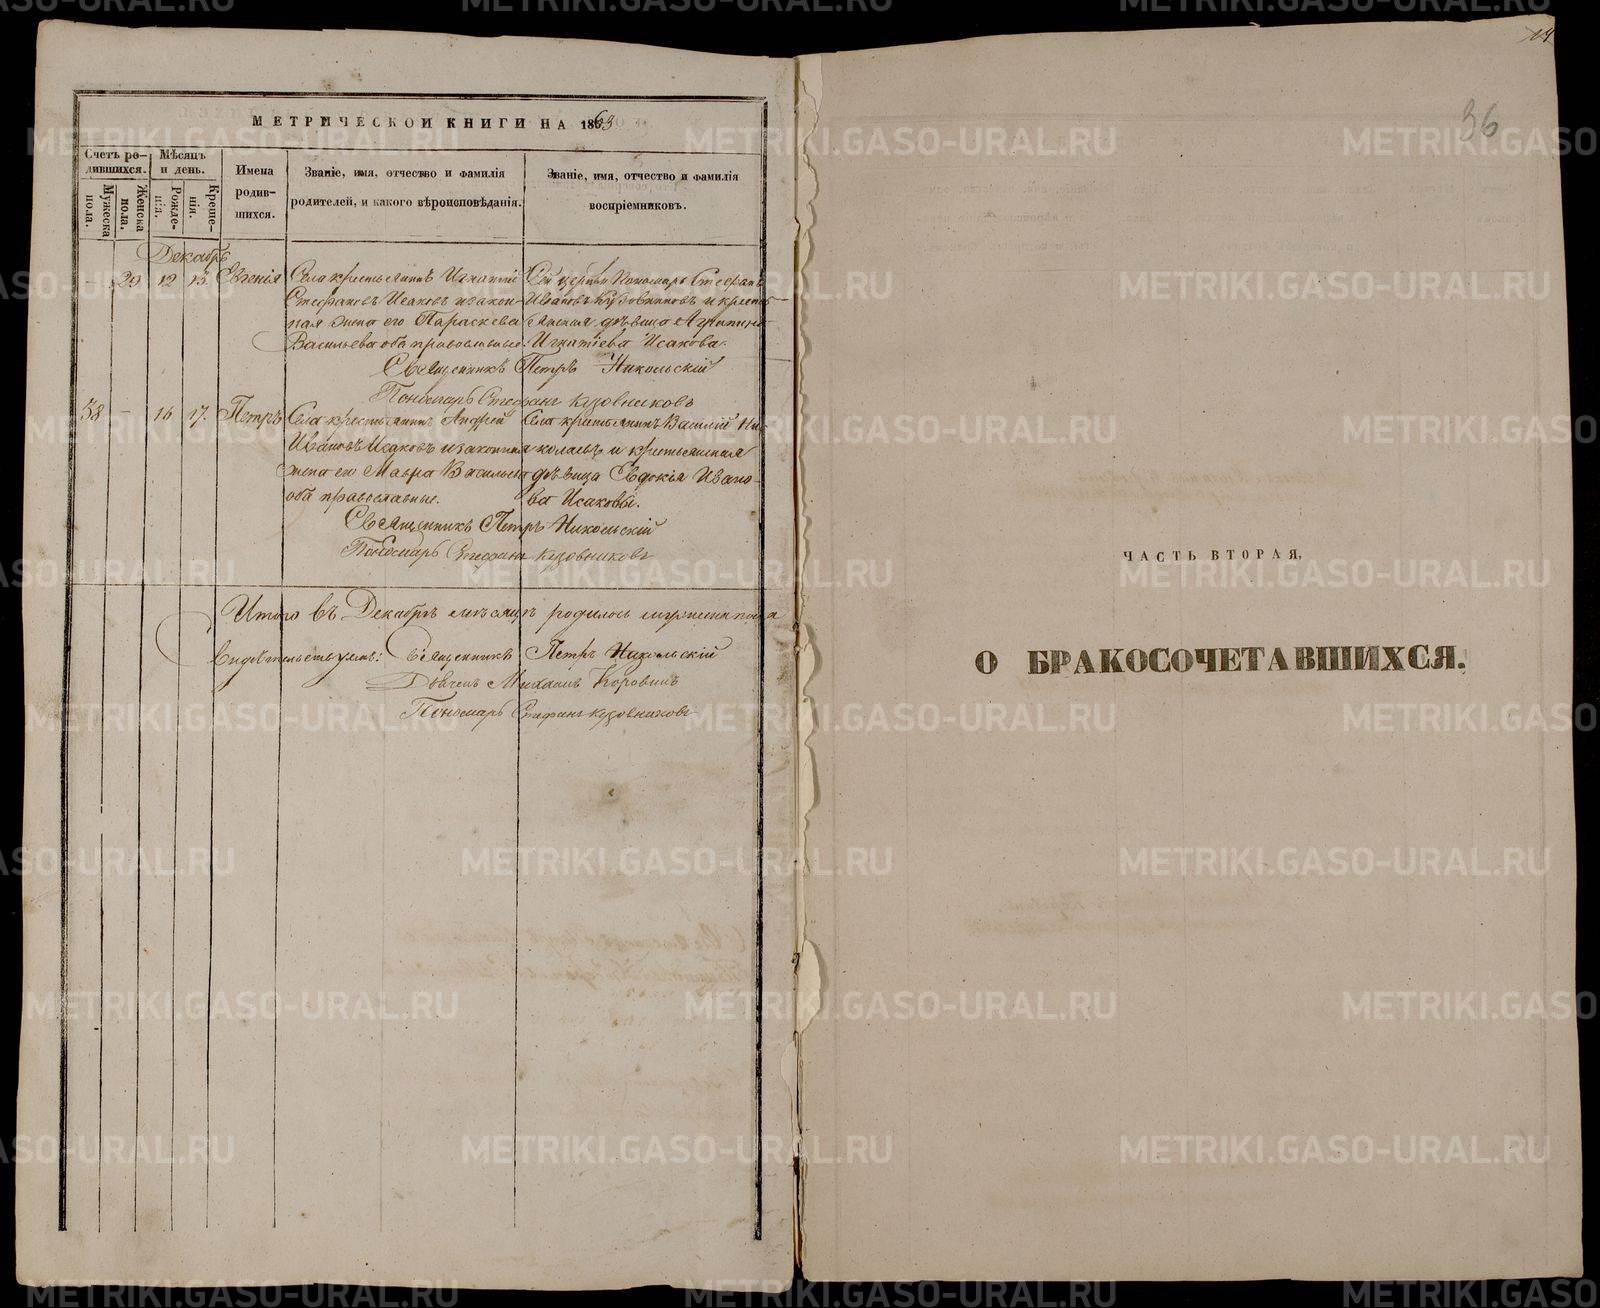 МЕТРИЧЕСКОЙ КНИГИ НА 1863
Счетъ родившихся.
Мужеска пола.
Женска пола.
Мѣсяцъ и день.
Рожденія.
Крещенія.
Имена родившихся.
Званіе, имя, отчество и фамилія родителей, и какого вѣроисповѣданія.
Званіе, имя, отчество и фамилія воспріемниковъ.
Декабрь
29 12 13. Евгенія
Села крестьянинъ Игнатій
Стефановъ Исаковъ и закон-
ная жена его Параскева
Васильева оба православные.
Сей церкви Пономарь Стефанъ
Ивановъ Кузовниковъ и кресть-
янская дѣвица Агрипина
Игнатіева Исакова.
Священникъ Петръ Никольскій
Пономарь Стефанъ Кузовниковъ
58 – 16 17. Петръ
Села крестьянинъ Андрей
Ивановъ Исаковъ и законная
жена его Мавра Васильева
оба православные.
Села крестьянинъ Василій Ни-
колаевъ и крестьянская
дѣвица Евдокія Ивано-
ва Исаковы.
Священникъ Петръ Никольскій
Пономарь Стефанъ Кузовниковъ
Итого въ Декабрѣ мѣсяцѣ родилось мужеска пола
Свидѣтельствуемъ: Священникъ Петръ Никольскій
Дьячекъ Михаилъ Коровинъ
Пономарь Стефанъ Кузовниковъ
14
36
ЧАСТЬ ВТОРАЯ,
О БРАКОСОЧЕТАВШИХСЯ.
METRIKI.GASO-URAL.RU